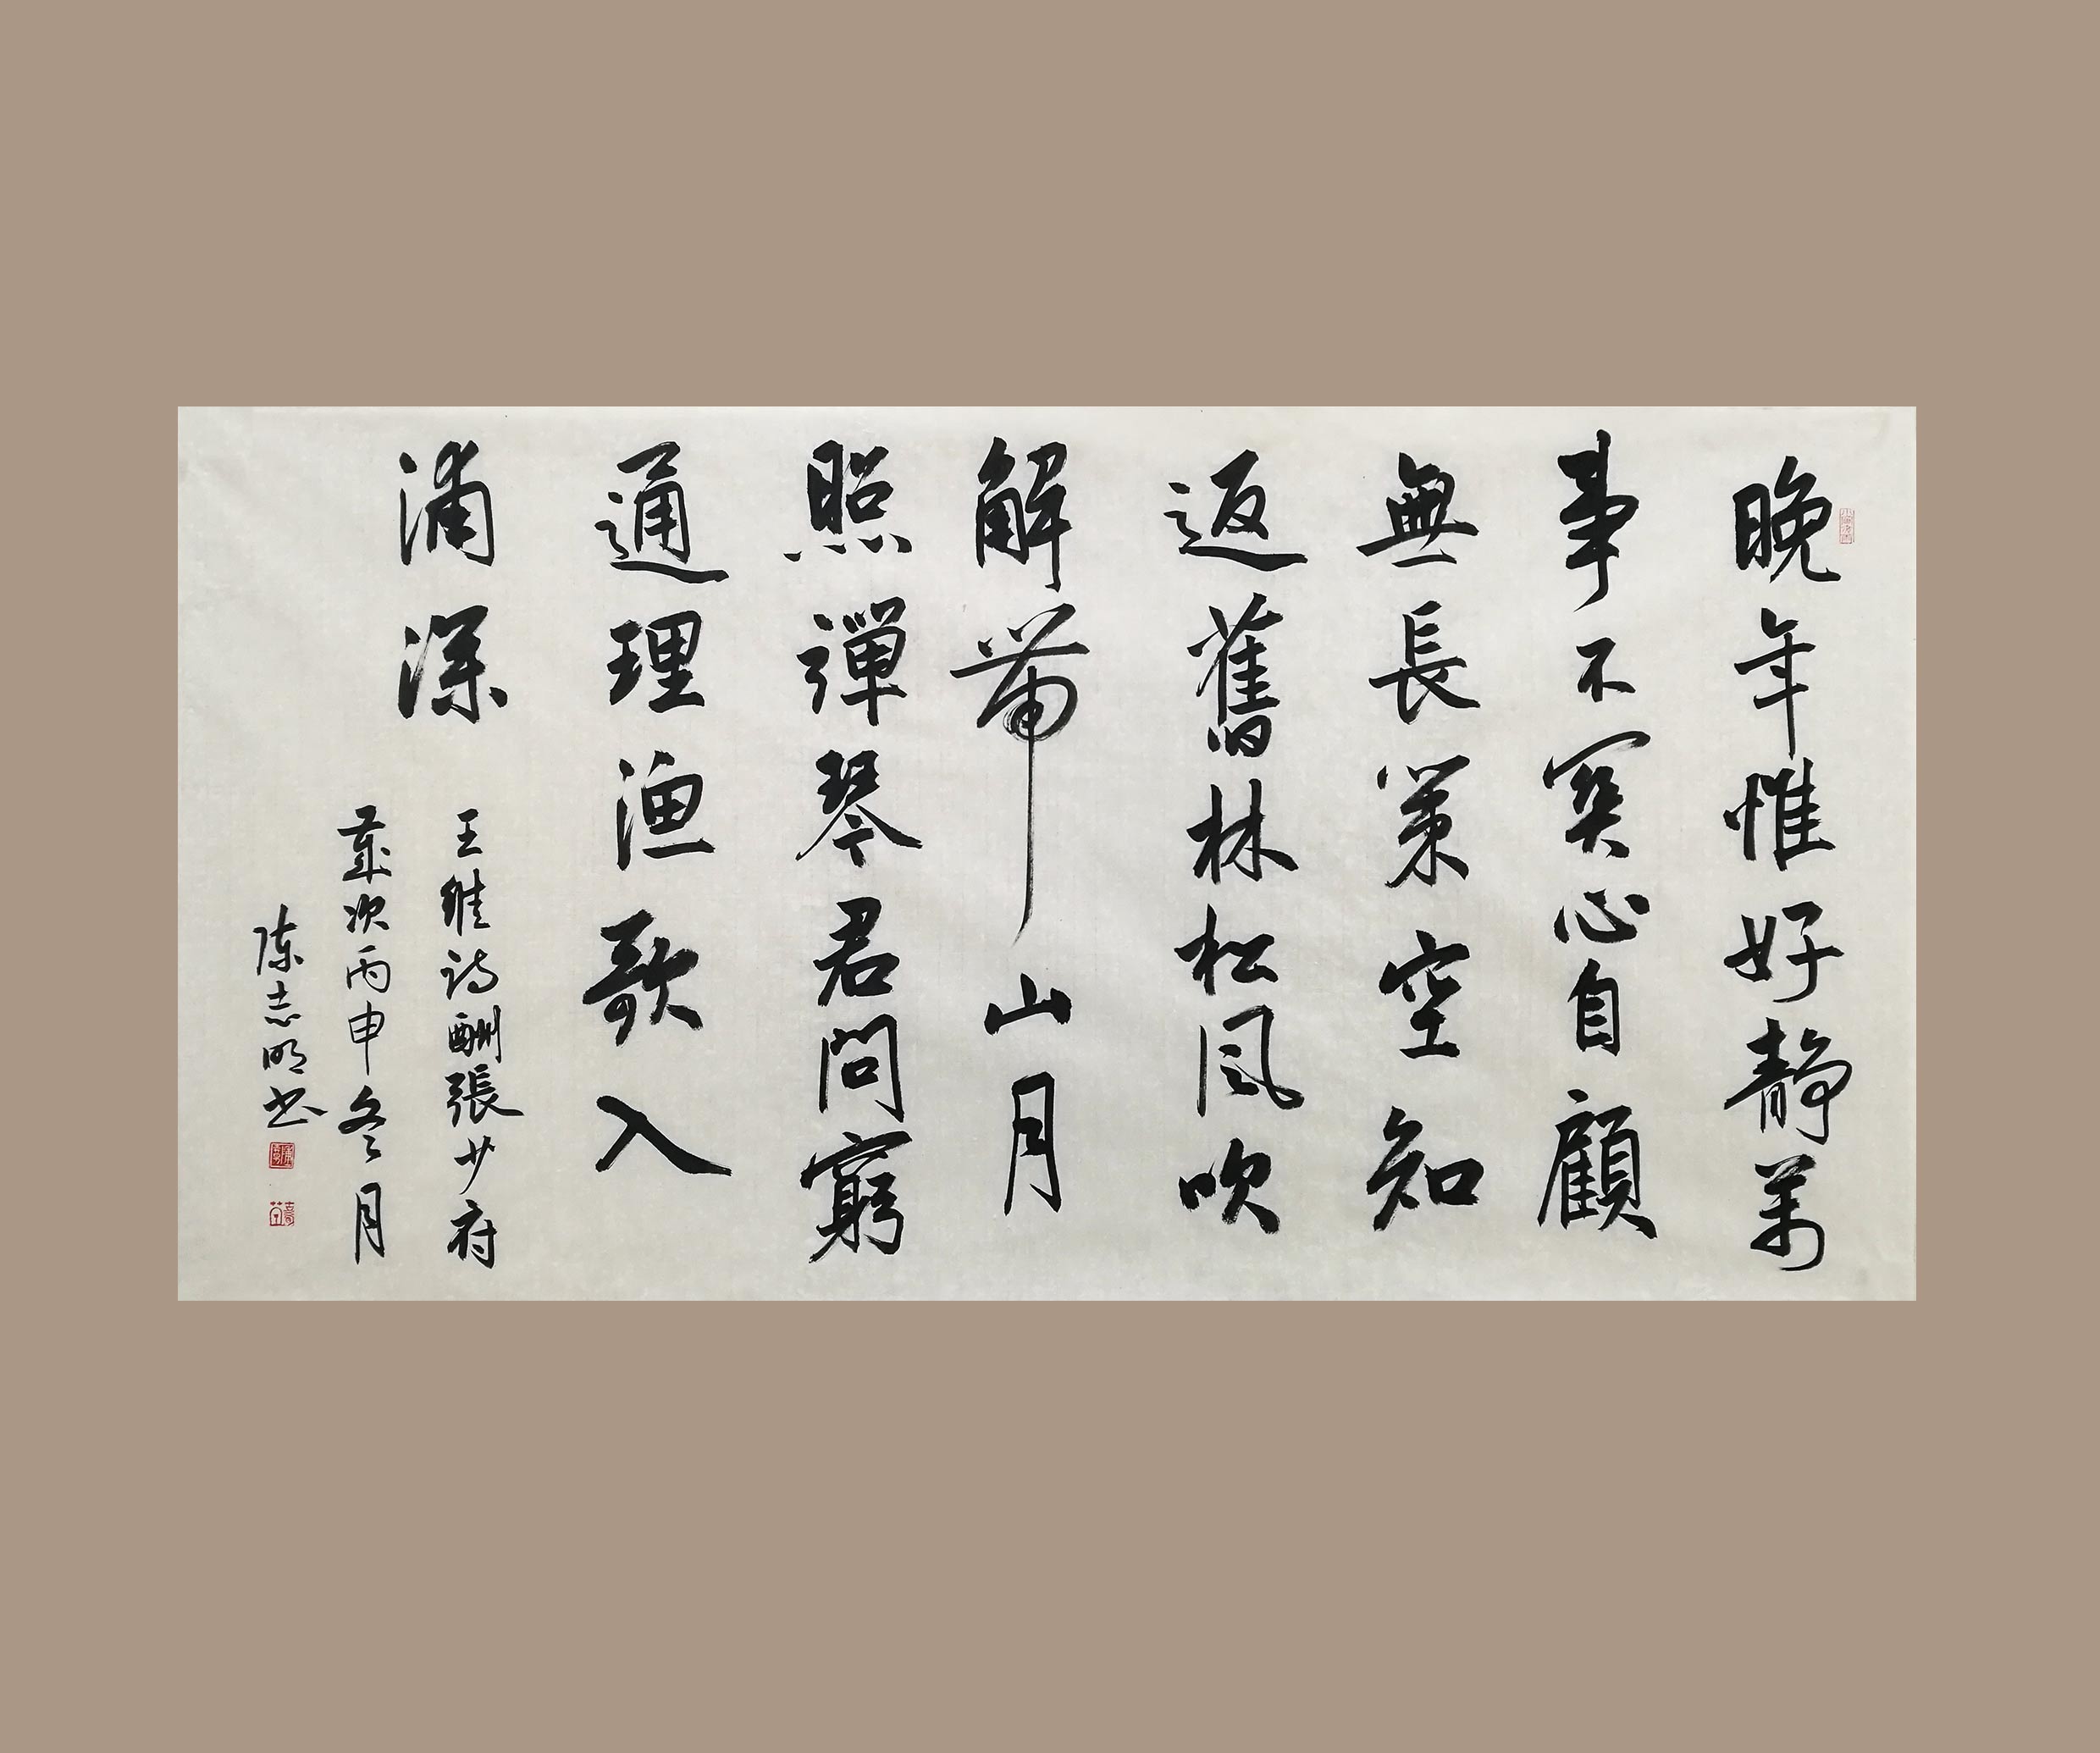 晚年惟好静萬
事不關心自顧
無長策空知
返舊林松風吹
解帶山月
照彈琴君問窮
通理漁歌入
浦深
王維詩酬張少府
歲次丙申冬月
陳志明书